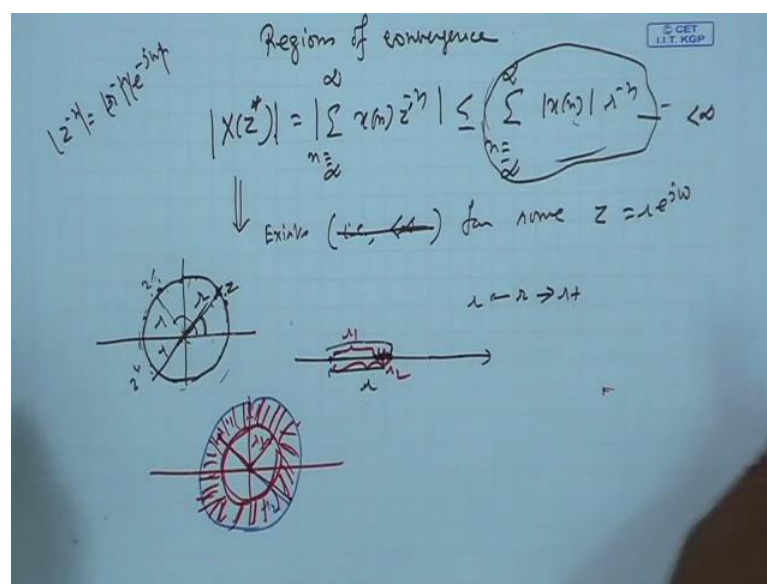 © CET
I.I.T. KGP
Regions of convergence
|z⁻ⁿ| = |r⁻ⁿ||e⁻ʲʷⁿ|
|X(z)| = |∑ x(n) z⁻ⁿ| ≤ ∑ |x(n)| r⁻ⁿ < ∞
∞
n = -∞
∞
n = -∞
for some z = r e^{jω}
r⁻ r → r+
z
r
r
r
r1
r2
r
r-
r+